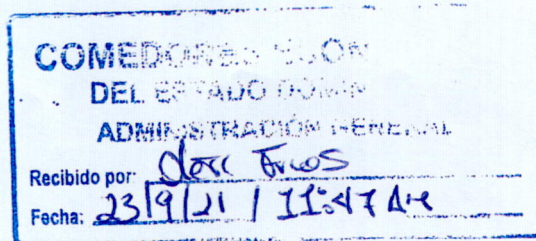 COMEDORES
DEL ESTADO DOMIN
ADMINISTRACIÓN GENERAL
Recibido por:
Fecha: 23/9/21 / 11:47 AM